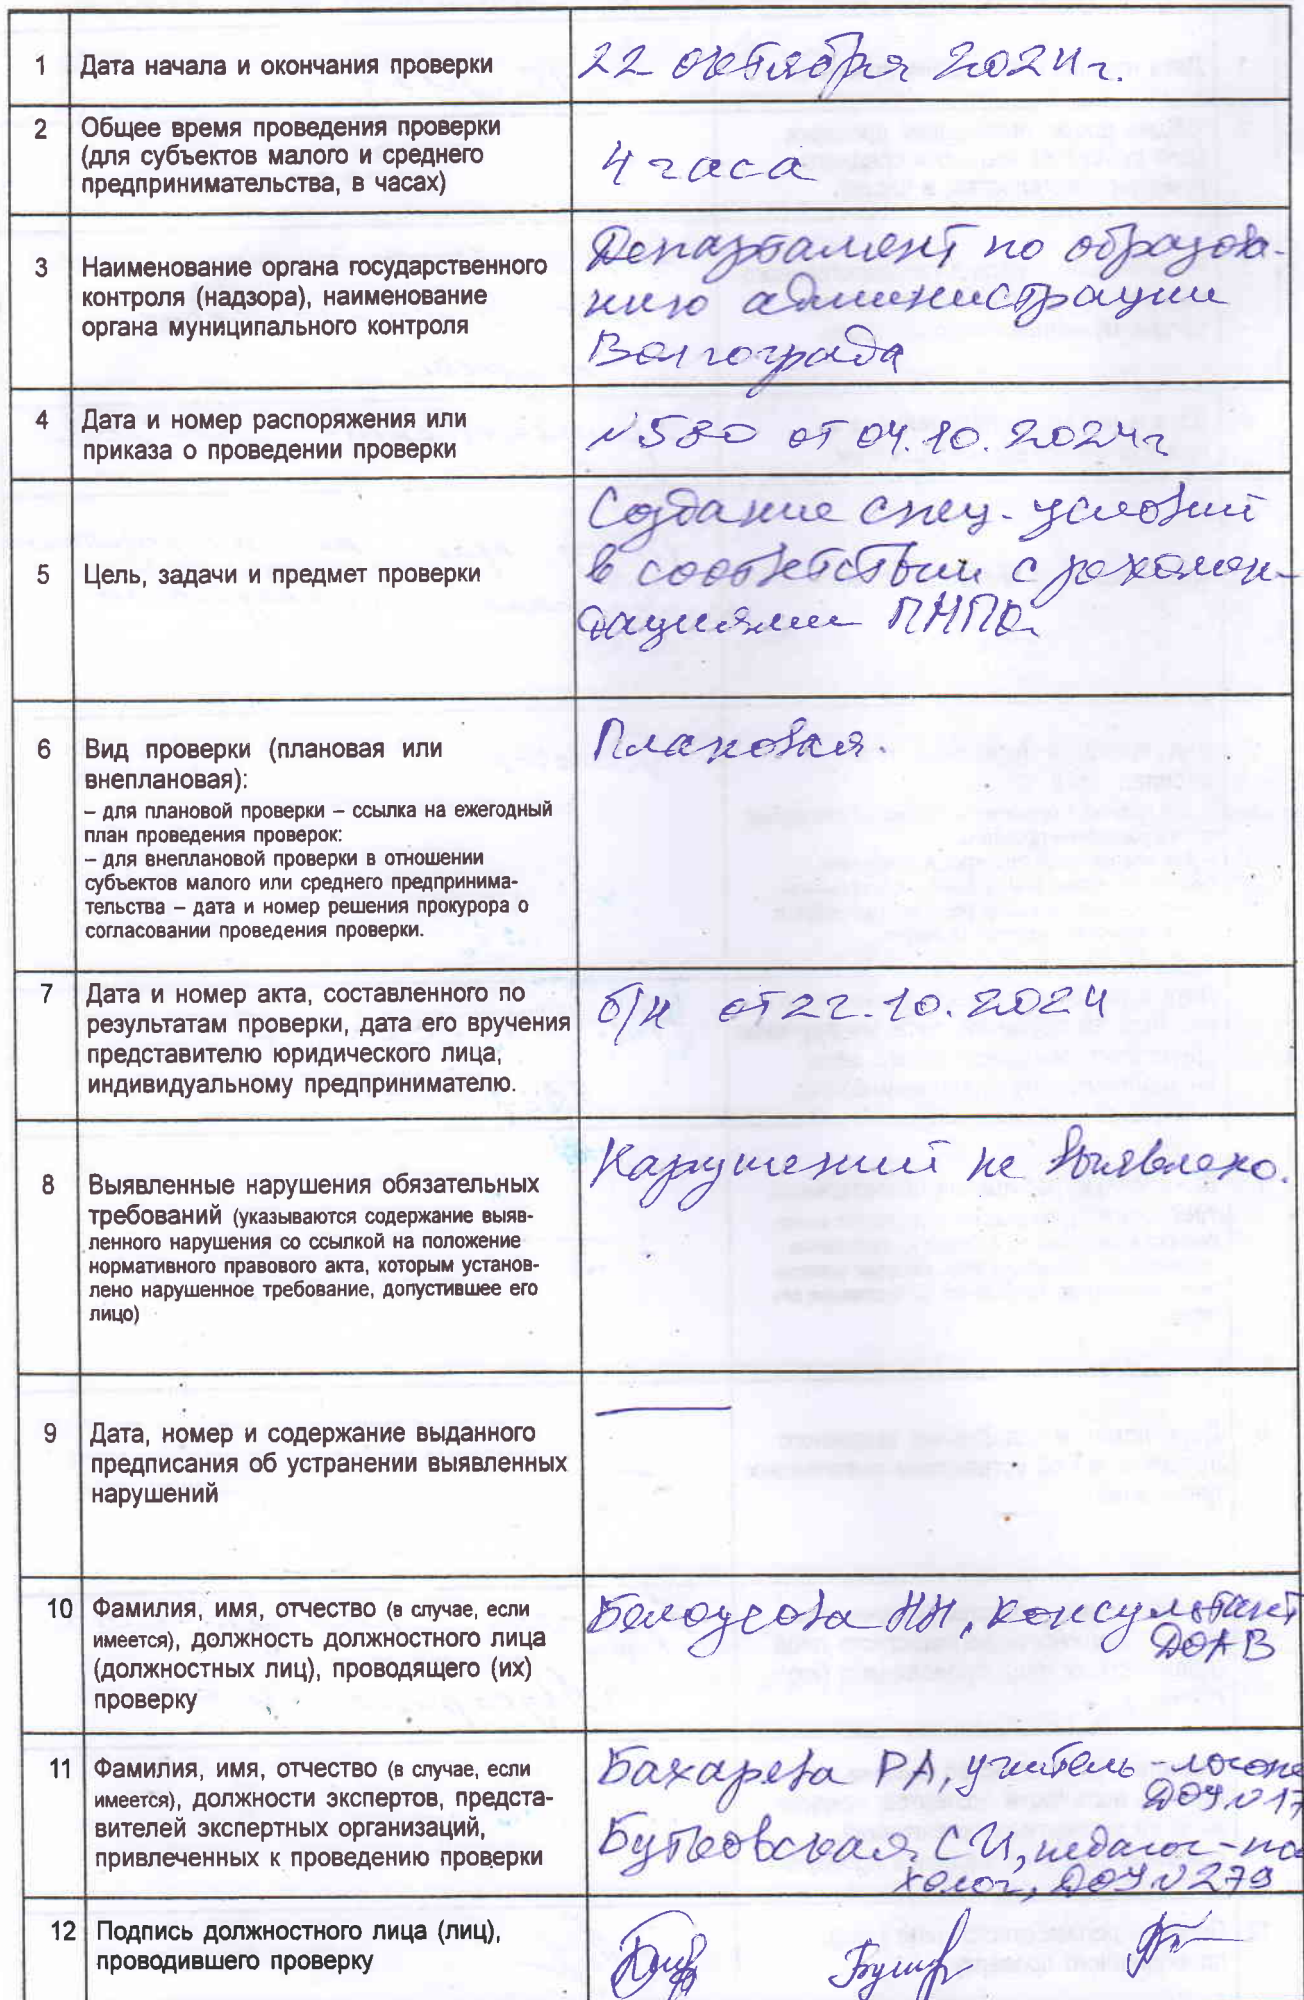 1 Дата начала и окончания проверки
22 октября 2024 г.
2 Общее время проведения проверки
(для субъектов малого и среднего
предпринимательства, в часах)
4 часа
3 Наименование органа государственного
контроля (надзора), наименование
органа муниципального контроля
Департамент по образова-
нию администрации
Волгограда
4 Дата и номер распоряжения или
приказа о проведении проверки
№580 от 04.10.2024г
5 Цель, задачи и предмет проверки
Создание спец. условий
в соответствии с рекомен-
дациями
6 Вид проверки (плановая или
внеплановая):
– для плановой проверки – ссылка на ежегодный
план проведения проверок:
– для внеплановой проверки в отношении
субъектов малого или среднего предпринима-
тельства – дата и номер решения прокурора о
согласовании проведения проверки.
Плановая.
7 Дата и номер акта, составленного по
результатам проверки, дата его вручения
представителю юридического лица,
индивидуальному предпринимателю.
б/н от 22.10.2024
8 Выявленные нарушения обязательных
требований (указываются содержание выяв-
ленного нарушения со ссылкой на положение
нормативного правового акта, которым установ-
лено нарушенное требование, допустившее его
лицо)
Нарушений не выявлено.
9 Дата, номер и содержание выданного
предписания об устранении выявленных
нарушений
—
10 Фамилия, имя, отчество (в случае, если
имеется), должность должностного лица
(должностных лиц), проводящего (их)
проверку
Белоусова НН, консультант
ДОАВ
11 Фамилия, имя, отчество (в случае, если
имеется), должности экспертов, предста-
вителей экспертных организаций,
привлеченных к проведению проверки
Бахарева РА, учитель-логопе
ДОУ №17
Бутковская СИ, педагог-пс
холог, ДОУ №279
12 Подпись должностного лица (лиц),
проводившего проверку